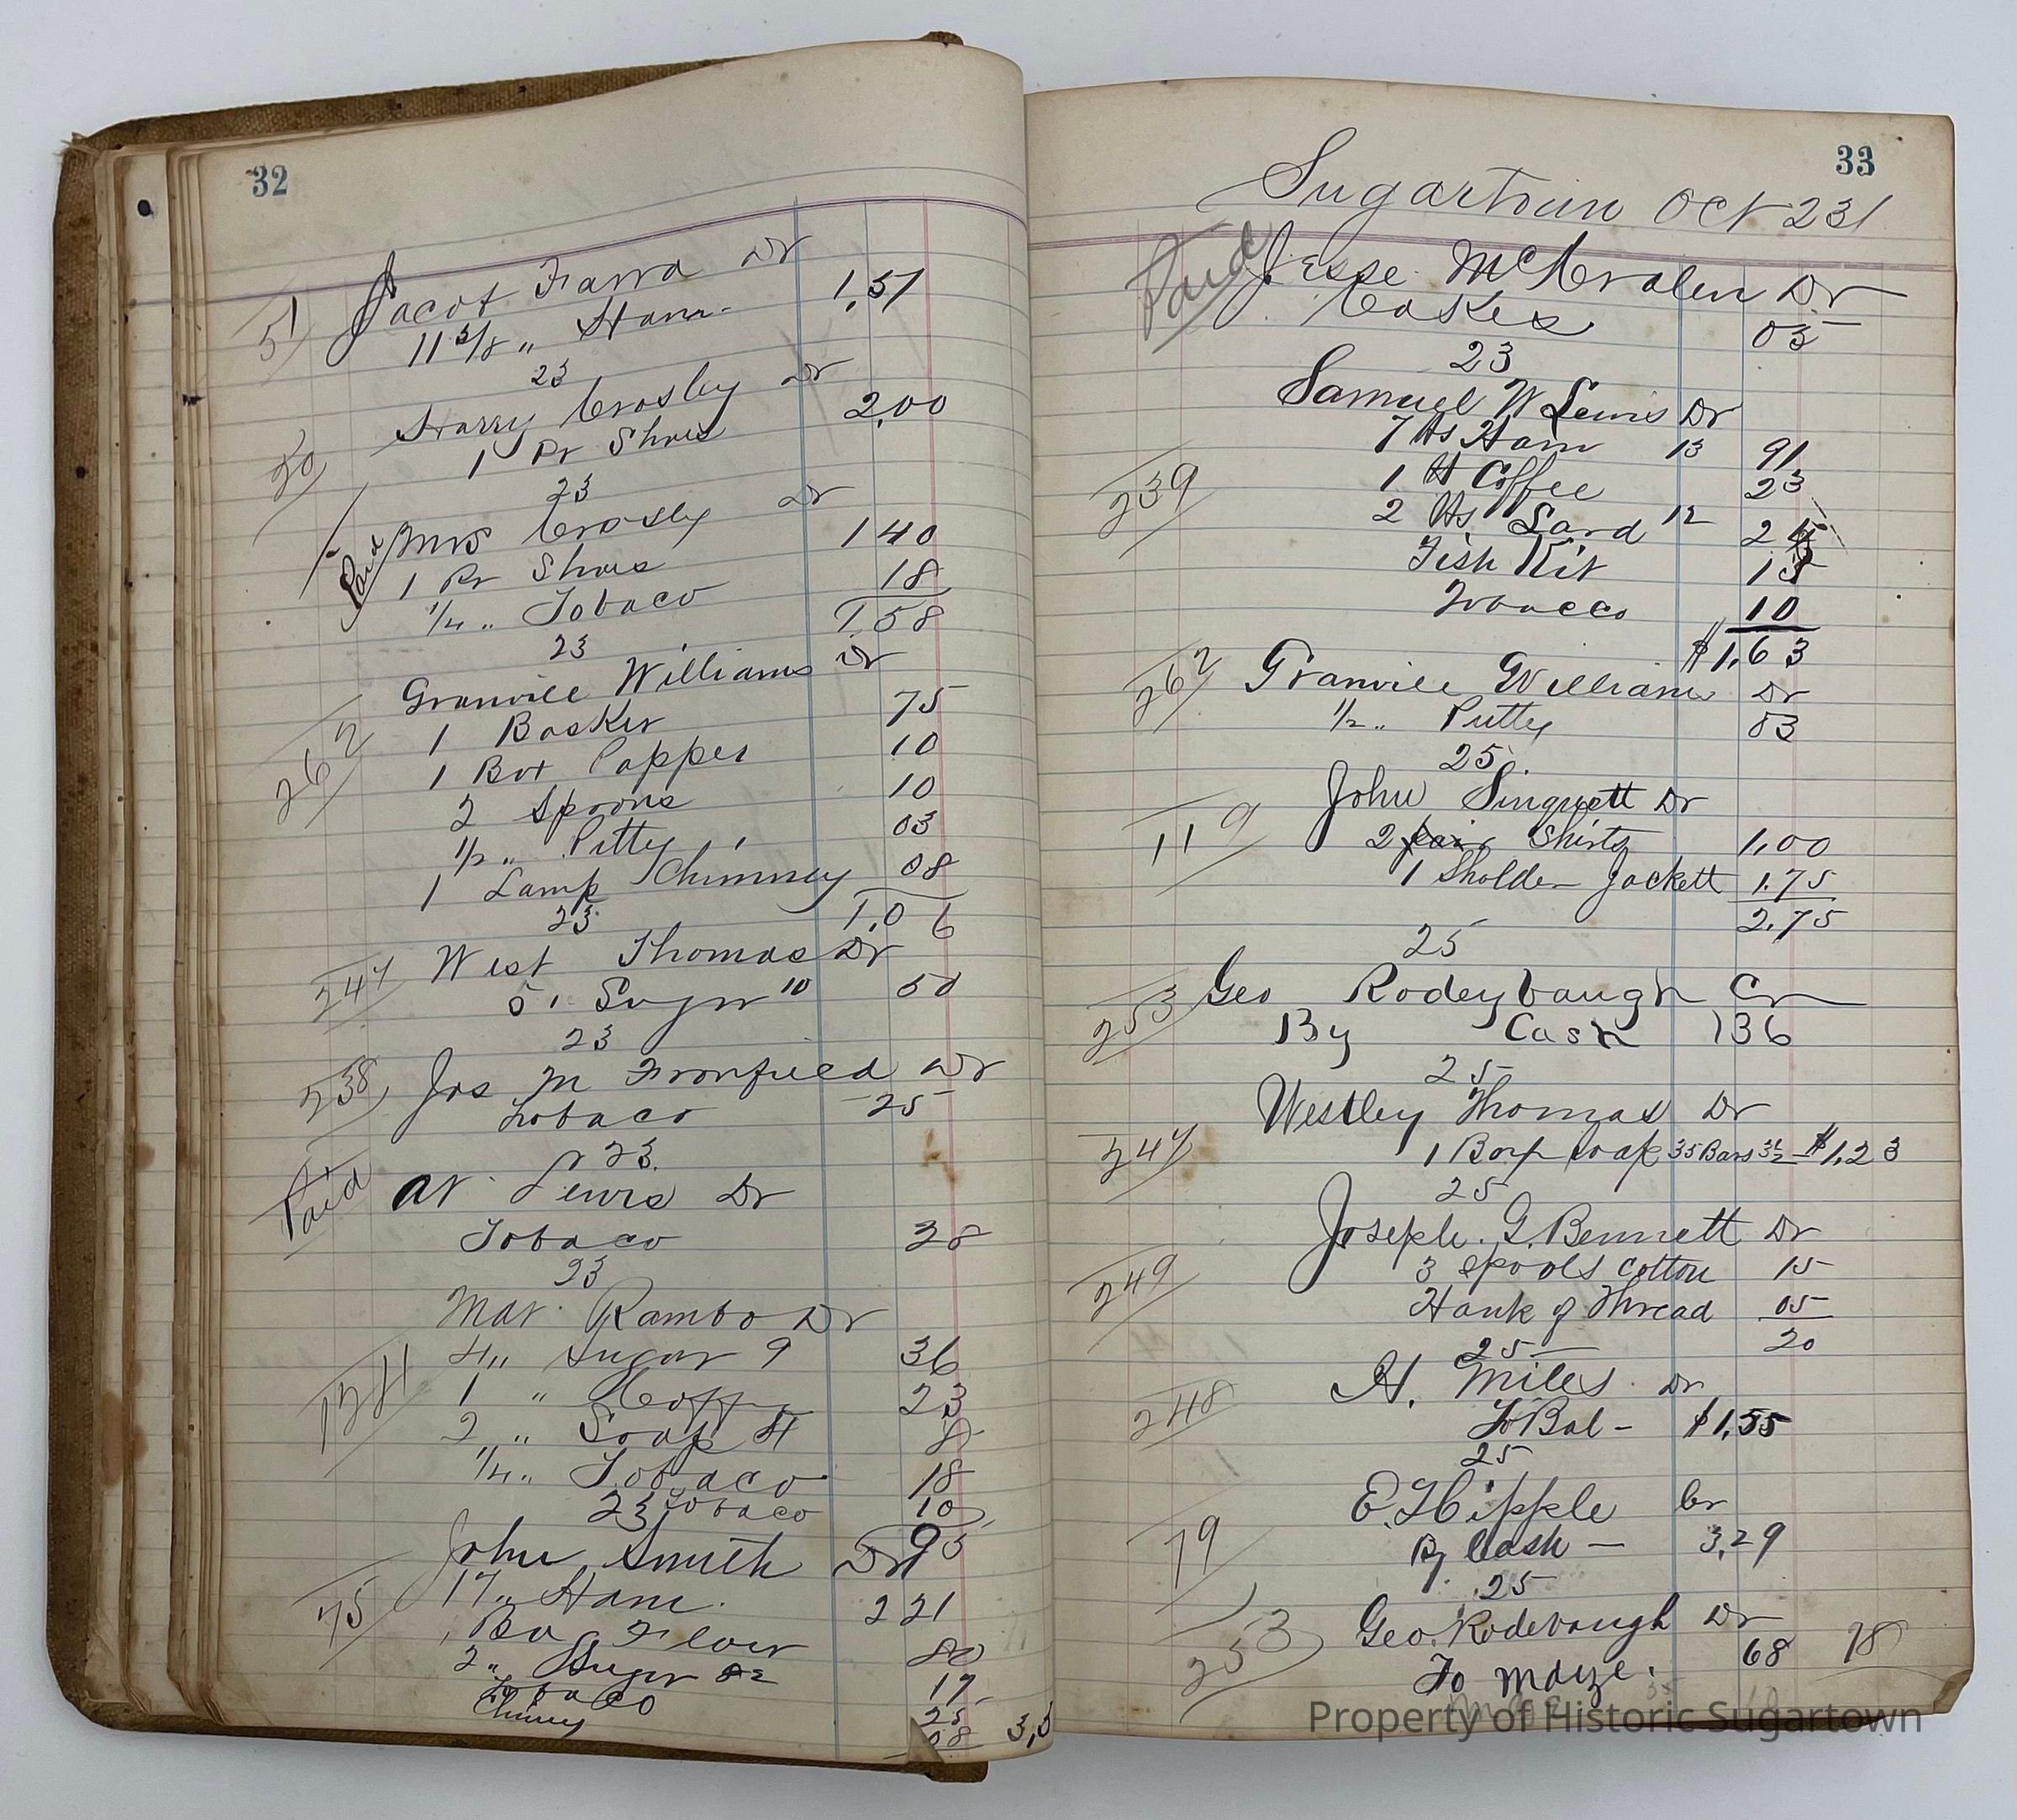 32
51
Jacob Farra Dr
11 5/8 " Ham 1,51
23
20
Harry Crosley Dr
1 Pr Shoes 2,00
23
Paid
Mrs Crosley Dr
1 Pr Shoes 1 40
1/4 " Tobaco 18
1.58
23
262
Granvill Williams Dr
1 Basket 75
1 Box Papper 10
2 Spoons 10
1/2 " Pitty 03
1 Lamp Chimney 08
1,06
23
247
West Thomas Dr
5 " Sugar 10 50
23
238
Jos M Fronfield Dr
Tobaco 25
23
Paid
Lewis Dr
Tobaco 38
23
Mat Rambo Dr
4 " Sugar 9 36
1 " Coff 23
2 " Soap 4 8
1/4 " Tobaco 18
23 Tobaco 10
95
75
John Smith Dr
17 " Ham 2 21
Flour 80
2 " Sugar 17
Tobaco 25
Chimney 08
33
Sugartown Oct 23
Paid
Jesse McCralen Dr
Cakes 05
23
239
Samuel W Lewis Dr
7 lbs Ham 13 91
1 lb Coffee 23
2 lbs Lard 12 24
Fish Kit 15
Tobacco 10
$1.63
262
Granvill Williams Dr
1/2 " Putty 03
25
119
John Singuett Dr
2 pair Shirts 1,00
1 Sholder Jackett 1.75
2.75
25
253
Geo Rodeybaugh Cr
By Cash 136
25
247
Westley Thomas Dr
1 Box Soap 35 Bars 3½ $1.23
25
249
Joseph G. Bennett Dr
3 Spools Cotton 15
Hank of Thread 05
20
25
248
H. Miles Dr
To Bal - $1.55
25
79
E. Hipple Cr
By Cash - 3,29
25
253
Geo. Rodebough Dr
To Maize. 68 78
Property of Historic Sugartown